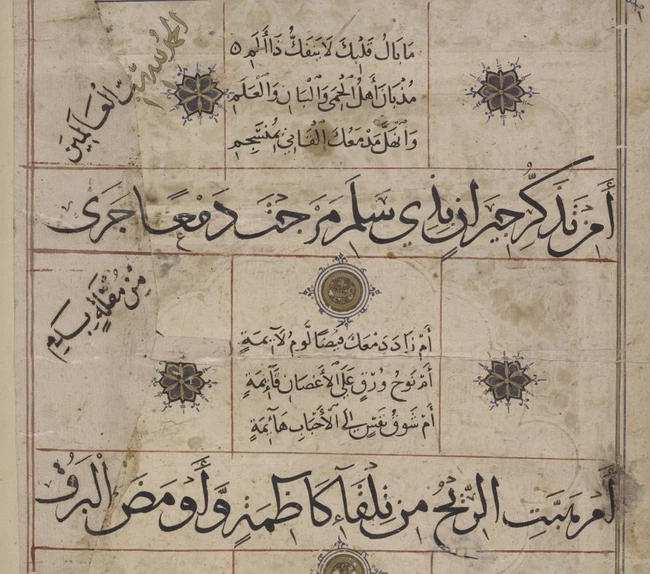 الحمد لله رب العالمين
مَا بَالُ قَلْبِكَ لَا يَنْفَكُّ ذَا أَلَمٍ
مُذْ بَانَ أَهْلُ الْحِمَى وَالْبَانِ وَالْعَلَمِ
وَانْهَلَّ مَدْمَعُكَ الْقَانِي بِمُنْسَجِمٍ
أَمِنْ تَذَكُّرِ جِيرَانٍ بِذِي سَلَمٍ مَزَجْتَ دَمْعًا جَرَى
مِنْ مُقْلَةٍ بِدَمِ
أَمْ زَادَ دَمْعَكَ فَيْضًا لَوْمُ لَائِمَةٍ
أَمْ نَوْحُ وُرْقٍ عَلَى الْأَغْصَانِ قَائِمَةٍ
أَمْ شَوْقُ نَفْسٍ إِلَى الْأَحْبَابِ هَائِمَةٍ
أَمْ هَبَّتِ الرِّيحُ مِنْ تِلْقَاءِ كَاظِمَةٍ وَأَوْمَضَ الْبَرْقُ